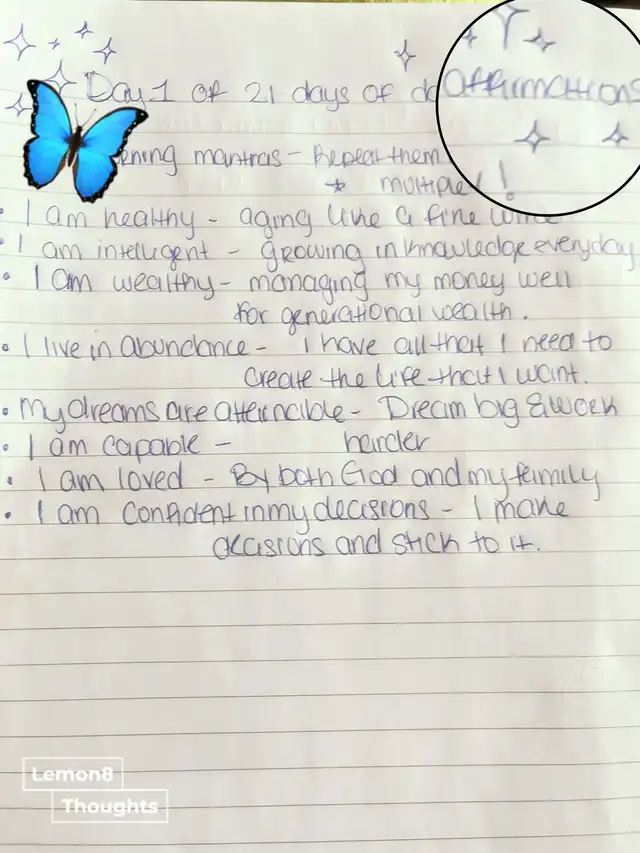 Day 1 of 21 days of
Affirmations
ening mantras - Repeat them
multiple !
• I am healthy - aging like a fine wine
• I am intelligent - growing in knowledge everyday
• I am wealthy - managing my money well
for generational wealth.
• I live in abundance - I have all that I need to
create the life that I want.
• My dreams are - Dream big & work
harder
• I am capable -
• I am loved - By both God and my family
• I am confident in my decisions - I make
and stick to it.
Lemon8
Thoughts